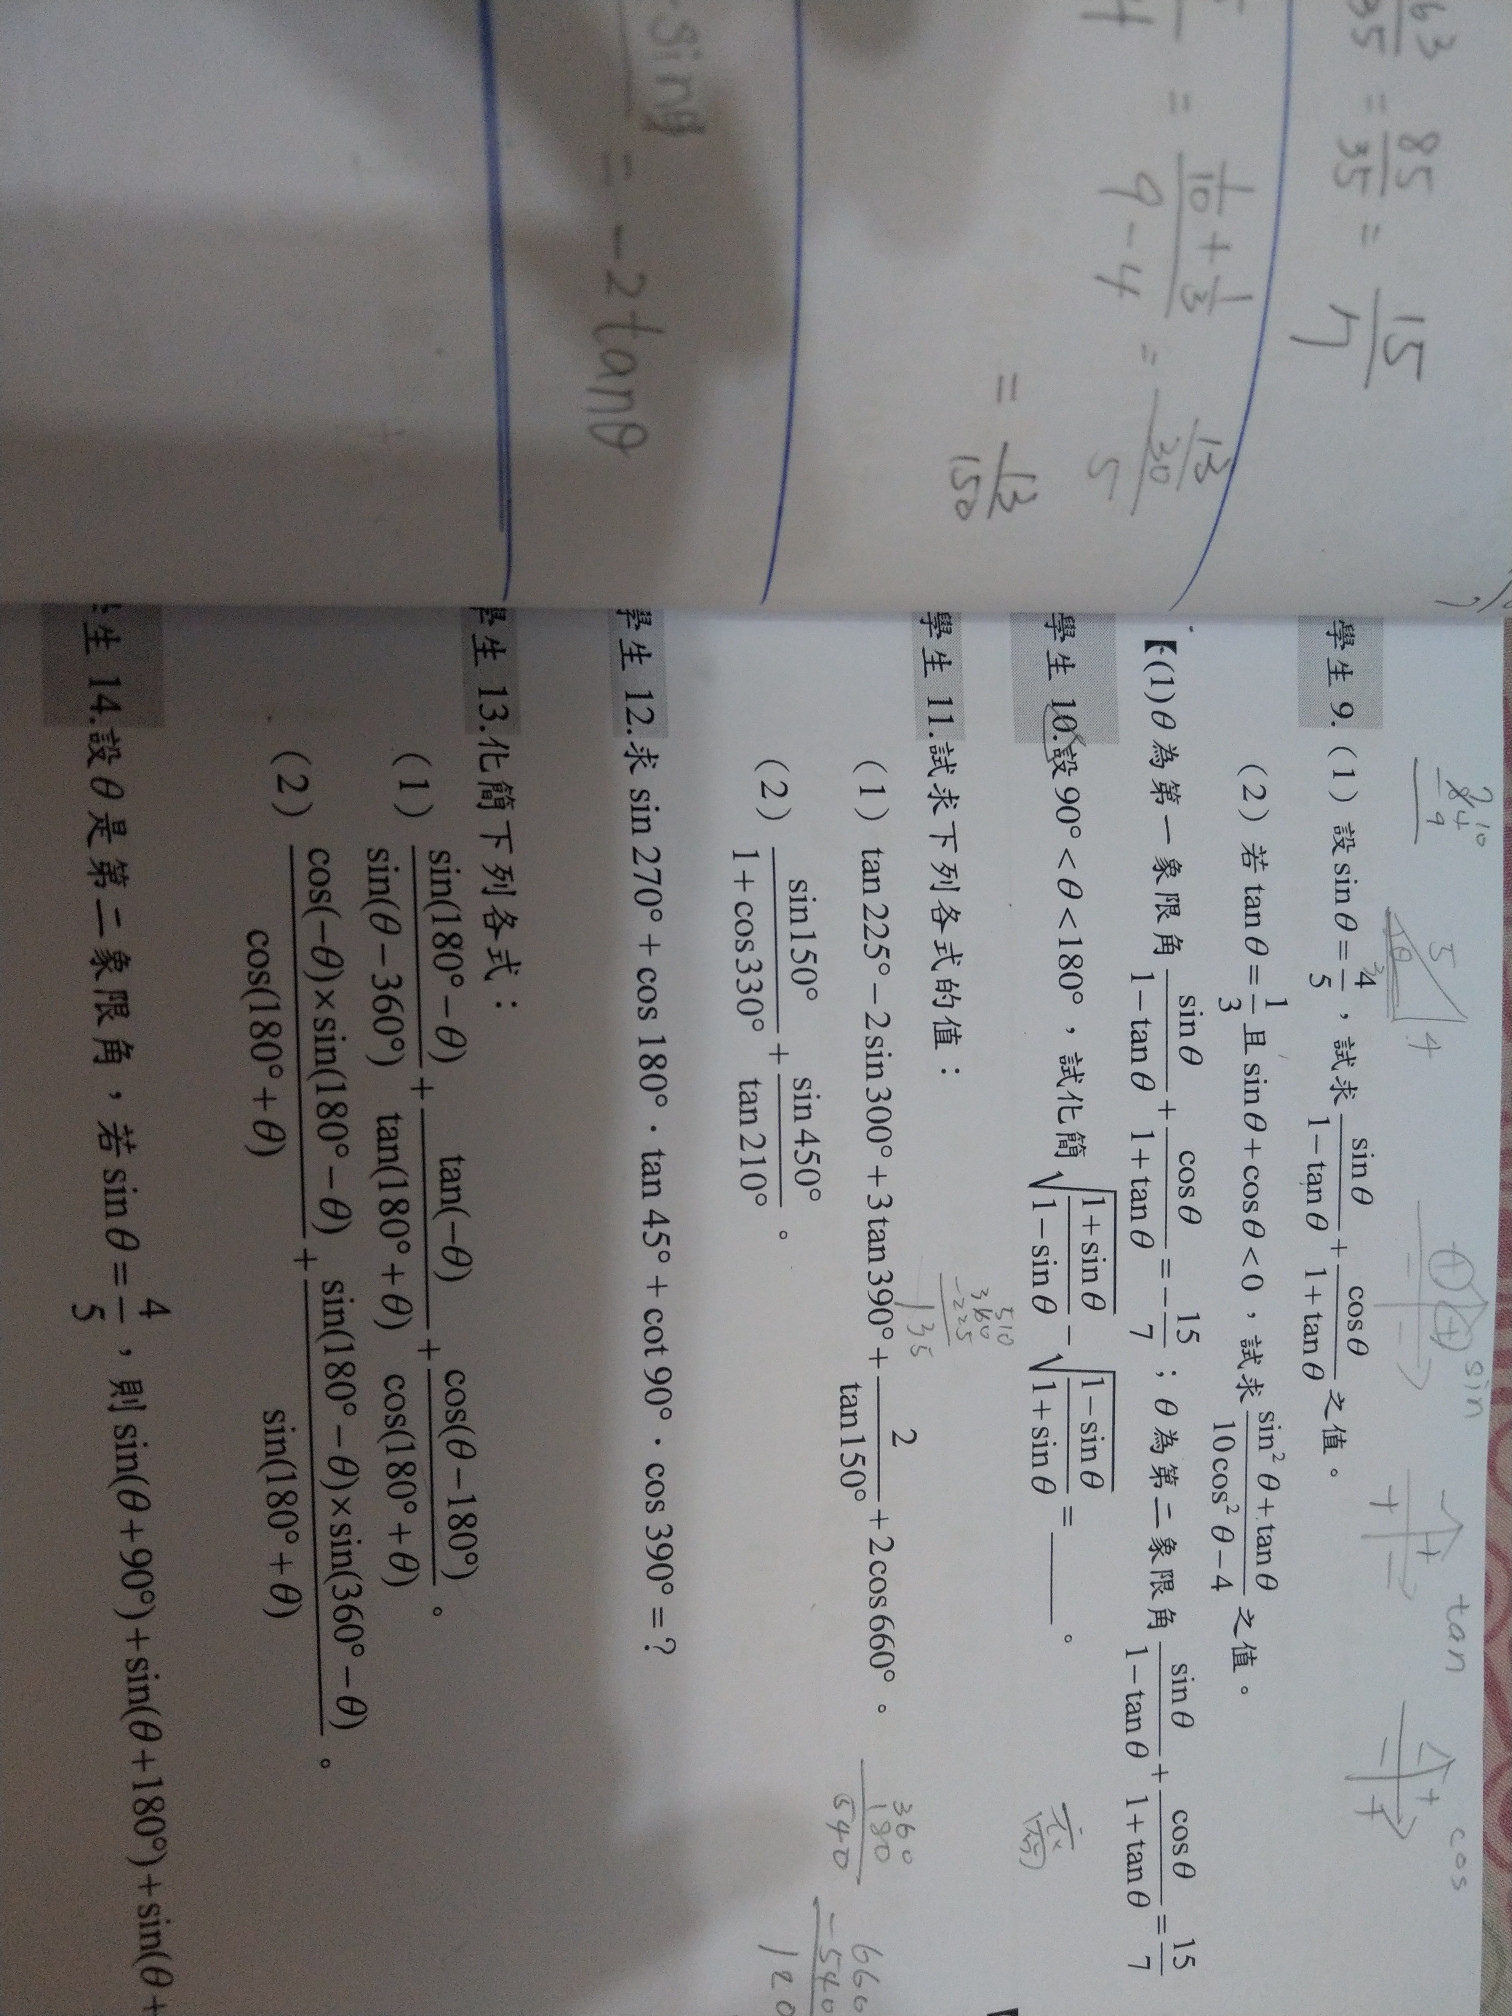 63/35 = 85/35 = 15/7
= (1/10 + 1/3)/(9-4) = (13/30)/5
= 13/150
= -2tanθ
sin tan cos
5 4
學生 9. (1) 設 sinθ = 4/5，試求 sinθ/(1-tanθ) + cosθ/(1+tanθ) 之值。
(2) 若 tanθ = 1/3 且 sinθ+cosθ<0，試求 (sin²θ+tanθ)/(10cos²θ-4) 之值。
【(1)θ為第一象限角 sinθ/(1-tanθ) + cosθ/(1+tanθ) = -15/7；θ為第二象限角 sinθ/(1-tanθ) + cosθ/(1+tanθ) = 15/7
學生 10.設 90°<θ<180°，試化簡 √((1+sinθ)/(1-sinθ)) - √((1-sinθ)/(1+sinθ)) = ______。
360
-225
135
學生 11.試求下列各式的值：
(1) tan225°-2sin300°+3tan390°+2/tan150°+2cos660°。
360
180
540
660
-540
120
(2) sin150°/(1+cos330°) + sin450°/tan210°。
學生 12.求 sin270°+cos180°·tan45°+cot90°·cos390°=?
學生 13.化簡下列各式：
(1) sin(180°-θ)/sin(θ-360°) + tan(-θ)/tan(180°+θ) + cos(θ-180°)/cos(180°+θ)。
(2) cos(-θ)×sin(180°-θ)/cos(180°+θ) + sin(180°-θ)×sin(360°-θ)/sin(180°+θ)。
生 14.設θ是第二象限角，若 sinθ = 4/5，則 sin(θ+90°)+sin(θ+180°)+sin(θ+